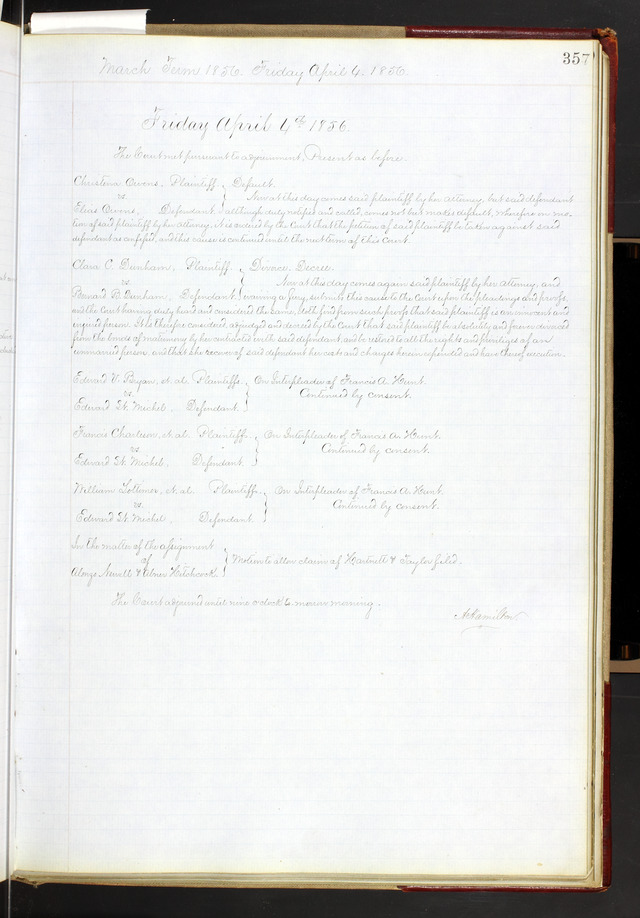 357
March Term 1856. Friday April 4. 1856.
Friday April 4th 1856.
The Court met pursuant to adjournment, Present as before.
Christena Owens, Plaintiff } Default.
vs. Now at this day comes said plaintiff by her attorney, but said defendant
Elias Owens, Defendant. although duly notified and called, comes not but makes default, wherefore on mo-
tion of said plaintiff by her attorney, it is ordered by the Court that the petition of said plaintiff be taken against said
defendant as confessed, and this cause is continued until the next term of this Court.
Clara C. Dunham, Plaintiff } Divorce. Decree.
vs. Now at this day comes again said plaintiff by her attorney, and
Barnard B. Dunham, Defendant. waiving a jury, submits this cause to the Court upon the pleadings and proofs,
and the Court having duly heard and considered the same, doth find from such proofs that said plaintiff is an innocent and
injured person. It is therefore considered, adjudged and decreed by the Court that said plaintiff be absolutely and forever divorced
from the bonds of matrimony by her contracted with said defendant and be restored to all the rights and privileges of an
unmarried person, and that she recover of said defendant her costs and charges herein expended and have thereof execution.
Edward V. Bryan, et. al. Plaintiffs. } On Interpleader of Francis A. Hunt.
vs. Continued by consent.
Edward St. Michel, Defendant.
Francis Charleson, et. al. Plaintiffs. } On Interpleader of Francis A. Hunt.
vs. Continued by consent.
Edward St. Michel, Defendant.
William Loltimer, et. al. Plaintiffs. } On Interpleader of Francis A. Hunt.
vs. Continued by consent.
Edward St. Michel, Defendant.
In the matter of the assignment
of } Motion to allow claim of Hartnett & Taylor filed.
Alonzo Newell & Abner Hitchcock.
The Court adjourned until nine o'clock to morrow morning.
A Hamilton